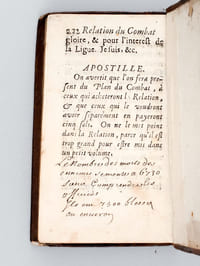 222 Relation du Combat
gloire, & pour l'interest de
la Ligue. Je suis, &c.
APOSTILLE.
On avertit que l'on fera pre-
sent du Plan du Combat, à
ceux qui acheteront la Relation,
& que ceux qui le voudront
avoir separément en payeront
cinq sols. On ne le mis point
dans la Relation, parce qu'il est
trop grand pour estre mis dans
un petit volume.
Le Nombre des morts des
ennemis se monte a 6730
sans Comprendre les
officiers
et 7500 blessez
ou environ